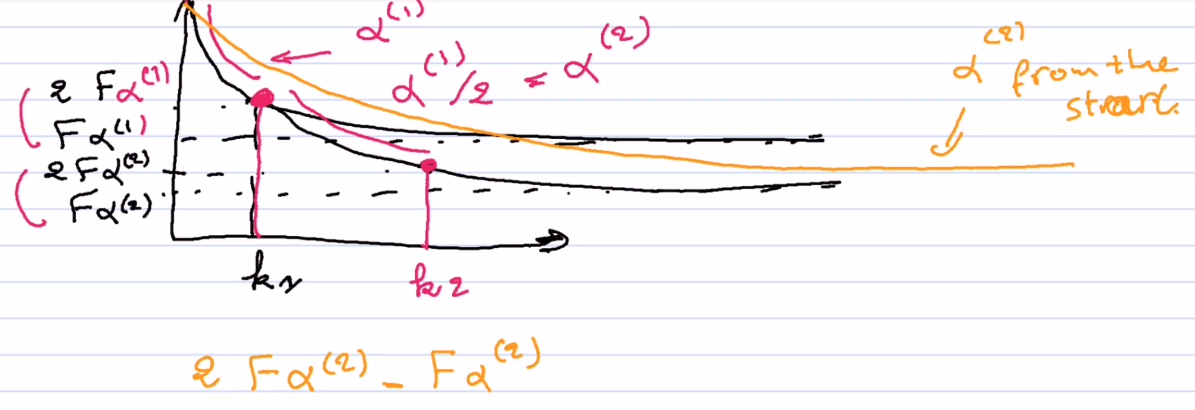 α^(1)
α^(1)/2 = α^(2)
α^(2) from the
strart.
2 Fα^(1)
Fα^(1)
2Fα^(2)
Fα^(2)
k1
k2
2 Fα^(2) - Fα^(2)